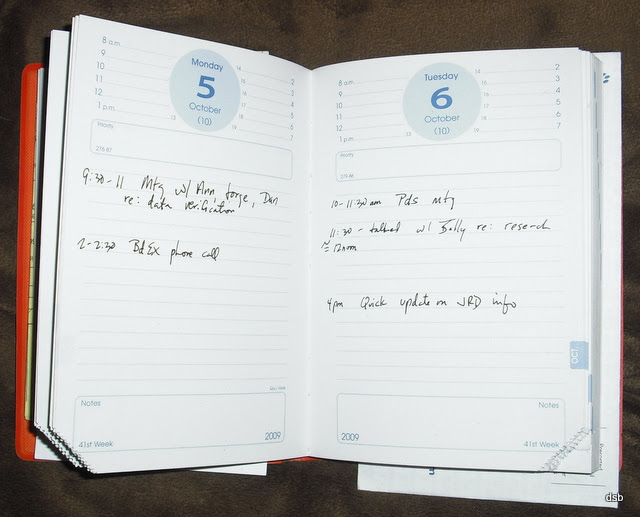 8 a.m.
9
10
11
12
1 p.m.
Monday
5
October
(10)
14
15
16
17
18
19
13
2
3
4
5
6
7
Priority
9:30-11 Mtg w/ Ann, Jorge, Dan
re: data verification
2-2:30 BdEx phone call
Notes
41st Week
2009
8 a.m.
9
10
11
12
1 p.m.
Tuesday
6
October
(10)
14
15
16
17
18
19
13
2
3
4
5
6
7
Priority
279-86
10-11:30 am Pds mtg
11:30 - talked w/ Billy re: research
≈ 12noon
4pm Quick update on JRD info
OCT.
Notes
2009
41st Week
dsb